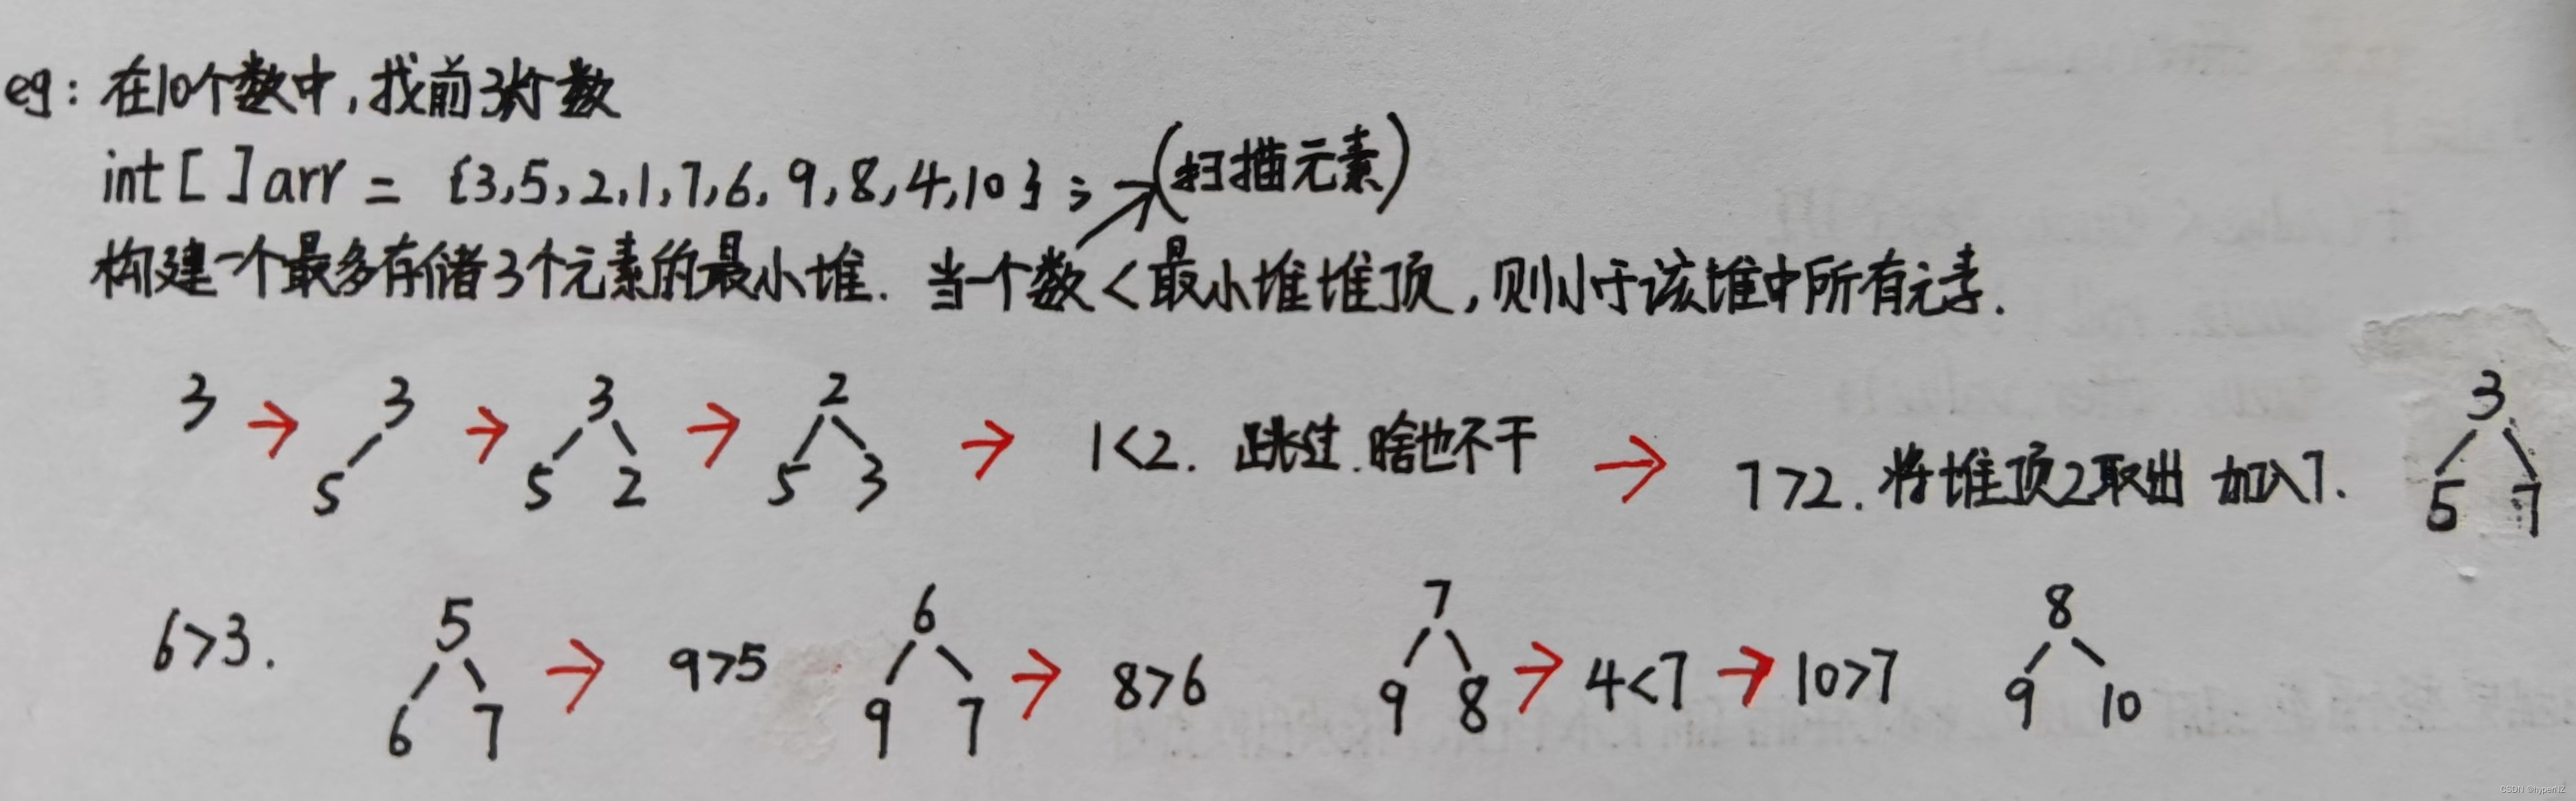 eg: 在10个数中,找前3个数
int[ ]arr = {3,5,2,1,7,6,9,8,4,10}; (扫描元素)
构建一个最多存储3个元素的最小堆. 当一个数<最小堆堆顶,则小于该堆中所有元素.
3 3 3 2 3
5 5 2 5 3 1<2. 跳过.啥也不干 7>2. 将堆顶2取出 加入7. 5 7
6>3. 5 9>5 6 8>6 7 4<7 10>7 8
6 7 9 7 9 8 9 10
CSDN @hyperNZ